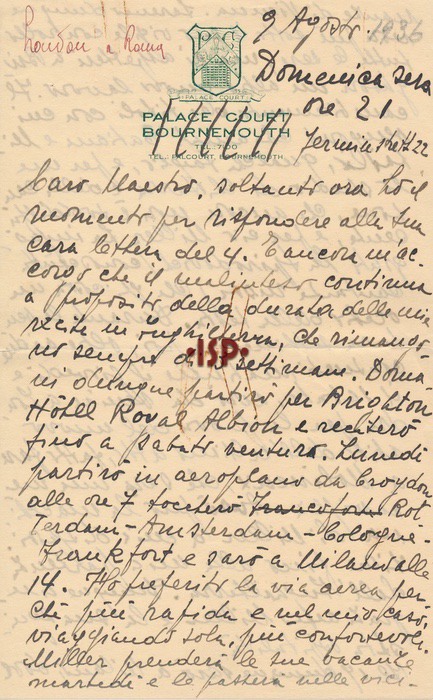 London a Roma
9 Agosto 1936
PALACE COURT
PALACE COURT
BOURNEMOUTH
TEL. 7100
TEL., PALCOURT, BOURNEMOUTH
Domenica sera
ore 21
Jermin street 22
Caro Maestro, soltanto ora ho il
momento per rispondere alla Sua
cara lettera del 4. E ancora m'ac-
corgo che il malinteso continua
a proposito della durata delle mie
recite in Inghilterra, che rimango
no sempre di settimane. Doma
ni dunque partirò per Brighton
Hôtell Royal Albion e reciterò
fino a sabato venturo. Lunedì
partirò in aeroplano da Croydon
alle ore 7 toccherò Francoforte Rot
Terdam-Amsterdam-Cologne-
Frankfort e sarò a Milano alle
14. Ho preferito la via aerea per-
chè più rapida e nel mio caso,
viaggiando sola, più confortevole.
Miller prenderà le sue vacanze
martedì e le passerà nelle vici-
ISP